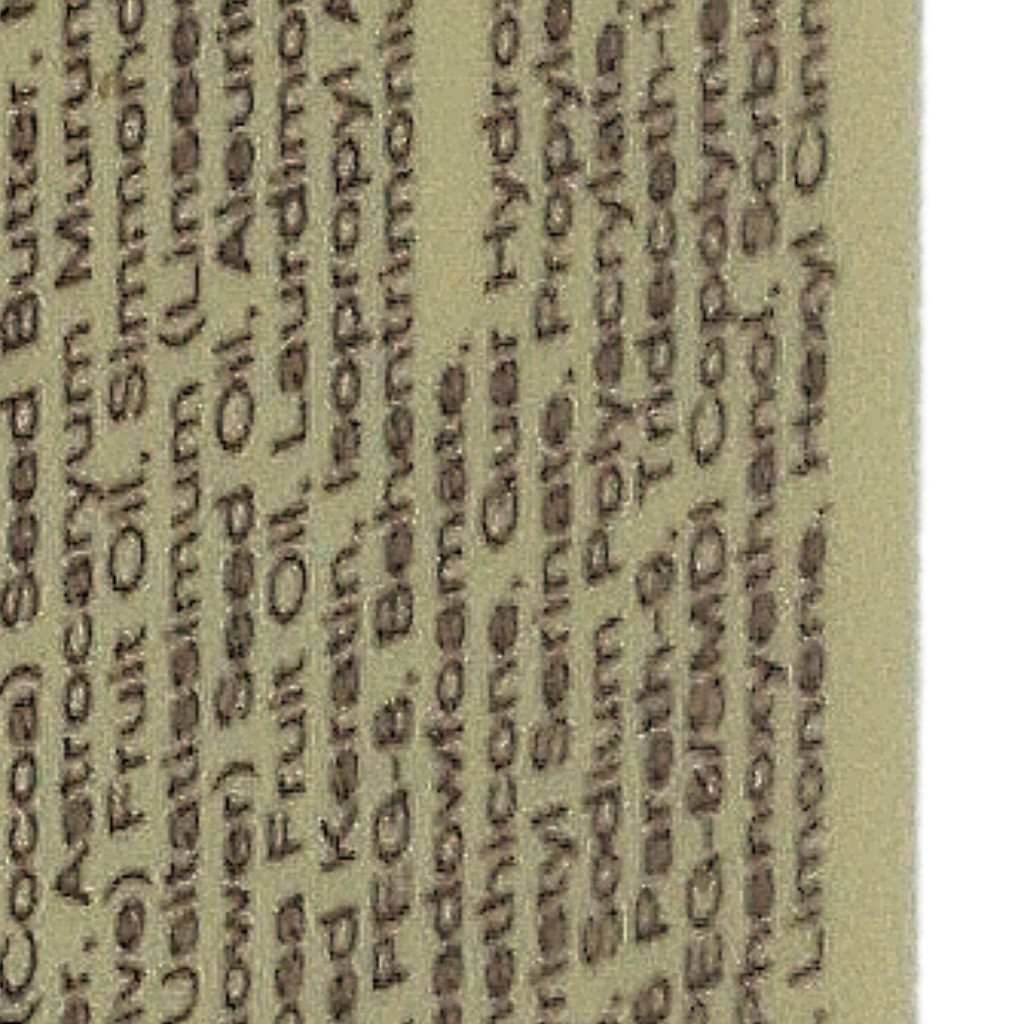 (Cocoa) Seed Butter,
Astrocaryum Murum
Fruit Oil, Simmond
Usitatissimum (Linseed
Seed Oil, Aleuri
Fruit Oil, Laurdimo
Keratin, Isopropyl
PEG-8, Behentrimoniu
eadowfoamate.
ethicone, Guar Hydro
Serinate, Propyle
Sodium Polyacrylate,
Pareth-6, Trideceth-
PEG-8/SMDI Copolyme
henoxyethanol, Sorbi
Limonene, Hexyl Cinn